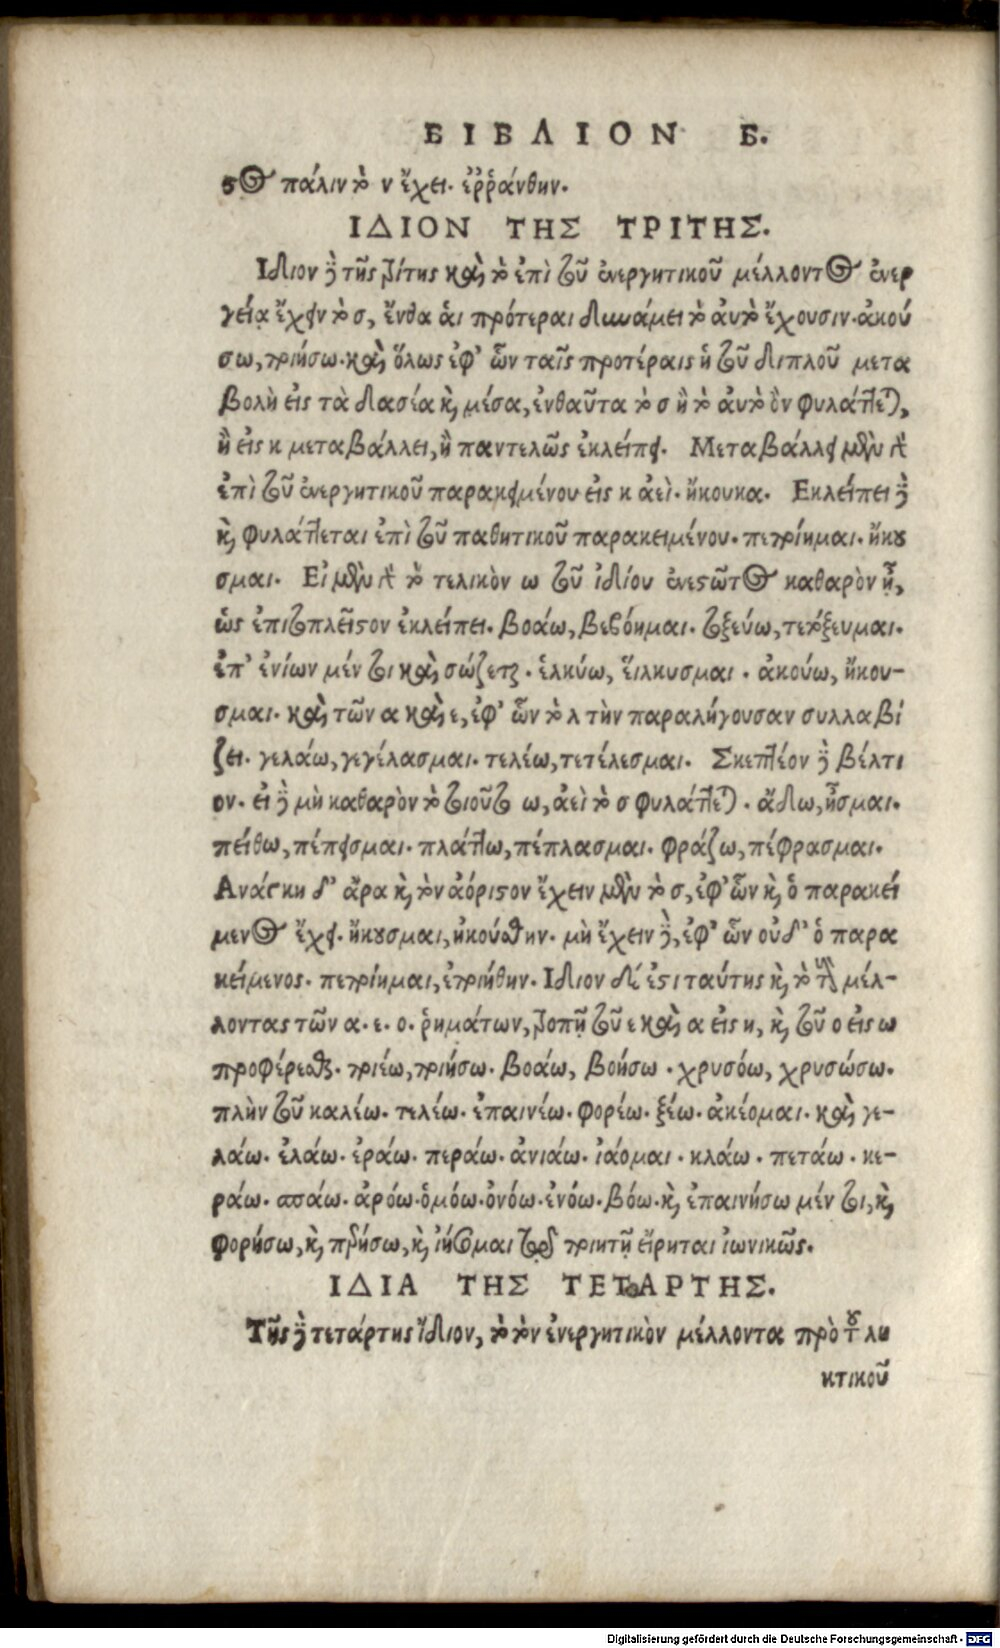 ΒΙΒΛΙΟΝ Β.
στος πάλιν τὸ ν ἔχει. ἐῤῥάνθην.
ΙΔΙΟΝ ΤΗΣ ΤΡΙΤΗΣ.
Ιδιον δὲ τῆς τρίτης καὶ τὸ ἐπὶ τοῦ ἐνεργητικοῦ μέλλοντος ἐνερ
γείᾳ ἔχειν τὸ σ, ἔνθα ἁι πρότεραι δυνάμει τὸ ἀυτὸ ἔχουσιν. ἀκού
σω, τριήσω. καὶ ὅλως ἐφ' ὧν ταῖς προτέραις ἡ τοῦ διπλοῦ μετα
βολὴ εἰς τὰ δασέα καὶ μέσα, ἐνθαῦτα τὸ σ ἢ τὸ ἀυτὸ ὂν φυλάττεται,
ἢ εἰς κ μεταβάλλει, ἢ παντελῶς ἐκλείπει. Μεταβάλλει μὲν γὰρ
ἐπὶ τοῦ ἐνεργητικοῦ παρακειμένου εἰς κ ἀεὶ. ἤκουκα. Εκλείπει δὲ
καὶ φυλάττεται ἐπὶ τοῦ παθητικοῦ παρακειμένου. πετρίημαι. ἤκου
σμαι. Εἰ μὲν γὰρ τὸ τελικὸν ω τοῦ ἰδίου ἐνεστῶτος καθαρὸν ᾖ,
ὡς ἐπιτοπλεῖστον ἐκλείπει. βοάω, βεβόημαι. τοξεύω, τετόξευμαι.
ἐπ' ἐνίων μέν τοι καὶ σώζεται. ἑλκύω, εἵλκυσμαι. ἀκούω, ἤκου-
σμαι. καὶ τῶν α καὶ ε, ἐφ' ὧν τὸ λ τὴν παραλήγουσαν συλλαβί
ζει. γελάω, γεγέλασμαι. τελέω, τετέλεσμαι. Σκεπτέον δὲ βέλτι
ον. εἰ δὲ μὴ καθαρὸν τὸ τοιοῦτο ω, ἀεὶ τὸ σ φυλάττεται. ᾄδω, ᾖσμαι.
πείθω, πέπεισμαι. πλάττω, πέπλασμαι. φράζω, πέφρασμαι.
Ανάγκη δ' ἄρα καὶ τὸν ἀόριστον ἔχειν μὲν τὸ σ, ἐφ' ὧν καὶ ὁ παρακεί
μενος ἔχει. ἤκουσμαι, ἠκούσθην. μὴ ἔχειν δὲ, ἐφ' ὧν οὐδ' ὁ παρα
κείμενος. πετρίημαι, ἐτριήθην. Ιδιον δέ ἐστι ταύτης καὶ τὸ τοὺς μέλ-
λοντας τῶν α. ε. ο. ῥημάτων, τροπῇ τοῦ ε καὶ α εἰς η, καὶ τοῦ ο εἰς ω
προφέρεσθαι. τριέω, τριήσω. βοάω, βοήσω. χρυσόω, χρυσώσω.
πλὴν τοῦ καλέω. τελέω. ἐπαινέω. φορέω. ξέω. ἀκέομαι. καὶ γε-
λάω. ἐλάω. ἐράω. περάω. ἀνιάω. ἰάομαι. κλάω. πετάω. κε-
ράω. σπάω. ἀρόω. ὀμόω. ὀνόω. ἐνόω. βόω. καὶ ἐπαινήσω μέν τοι, καὶ
φορήσω, καὶ περήσω, καὶ ἰήσομαι παρὰ τριητῇ εἴρηται ἰωνικῶς.
ΙΔΙΑ ΤΗΣ ΤΕΤΑΡΤΗΣ.
Τῆς δὲ τετάρτης ἴδιον, τὸ τὸν ἐνεργητικὸν μέλλοντα πρὸ τοῦ λη
κτικοῦ
Digitalisierung gefördert durch die Deutsche Forschungsgemeinschaft - DFG